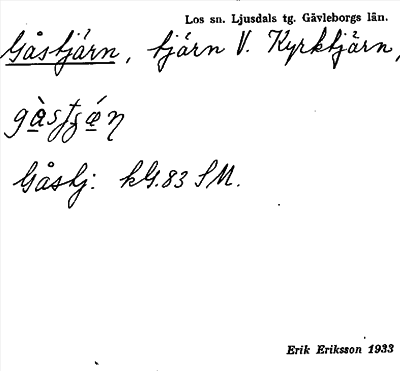 Los sn. Ljusdals tg. Gävleborgs län.
Gåstjärn, tjärn V. Kyrktjärn,
Gåstj: kG.83 SM.
Erik Eriksson 1933